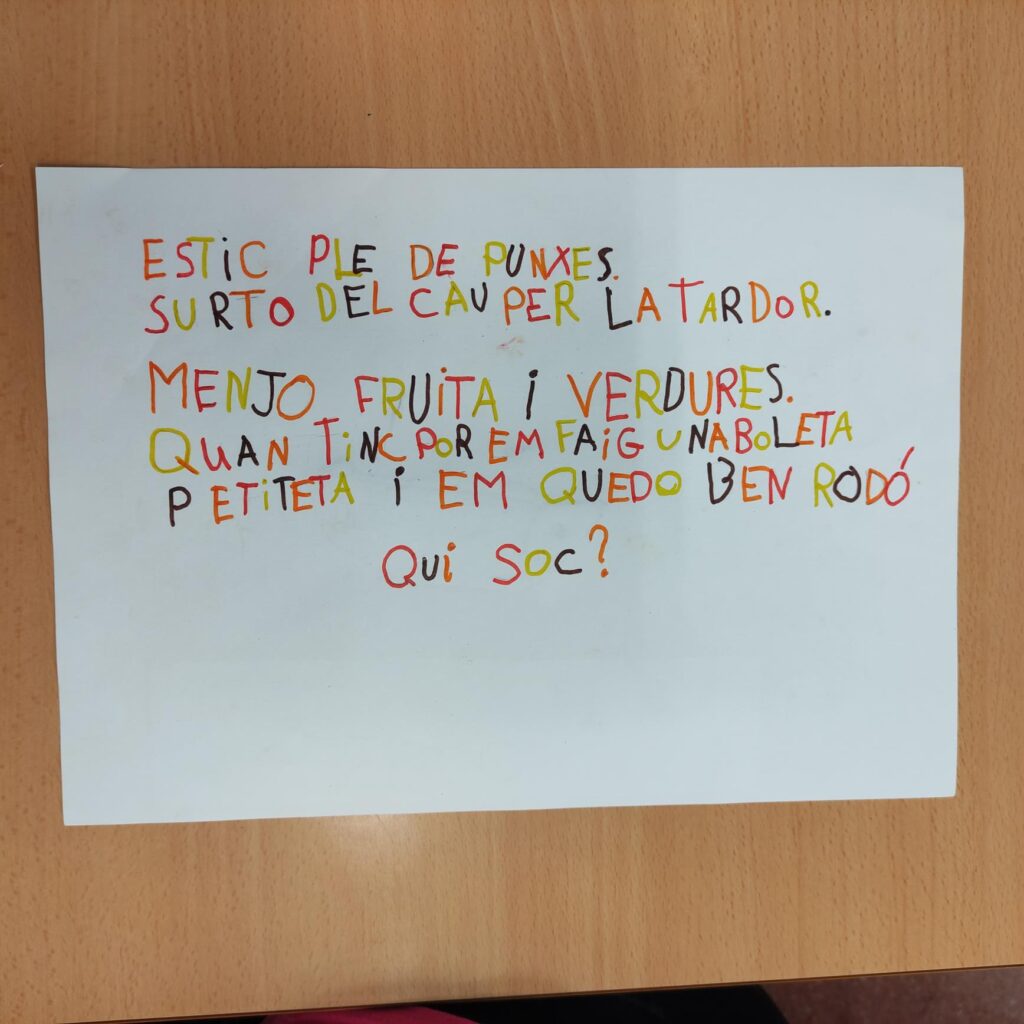 ESTiC PLE DE PUNXES.
SURTO DEL CAU PER LA TARDOR.
MENJO FRUiTA i VERDURES.
QUAN TiNC POR EM FAiG UNA BOLETA
PETiTETA i EM QUEDO BEN RODÓ
QUi SOC?